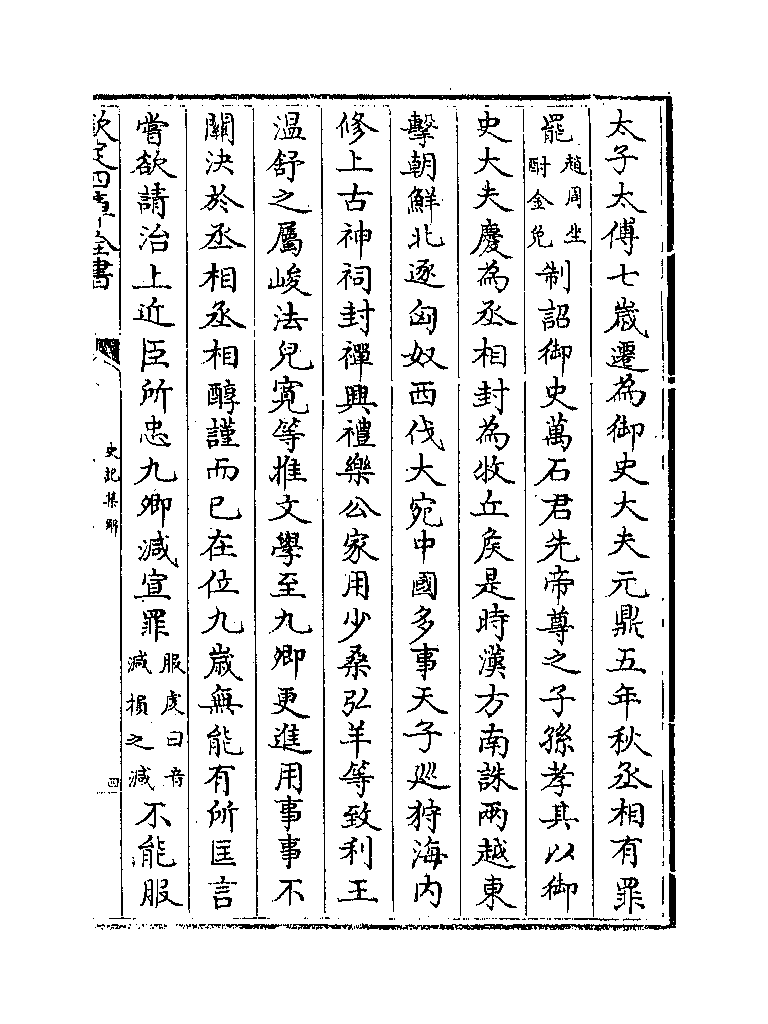 太子太傅七歲遷為御史大夫元鼎五年秋丞相有罪
罷趙周坐酎金免制詔御史萬石君先帝尊之子孫孝其以御
史大夫慶為丞相封為牧丘矦是時漢方南誅兩越東
擊朝鮮北逐匈奴西伐大宛中國多事天子廵狩海内
修上古神祠封禪興禮樂公家用少桑弘羊等致利王
温舒之屬峻法兒寛等推文學至九卿更進用事事不
關決於丞相丞相醇謹而已在位九歲無能有所匡言
嘗欲請治上近臣所忠九卿減宣罪服虔曰音減損之減不能服
欽定四庫全書
史記集解
四